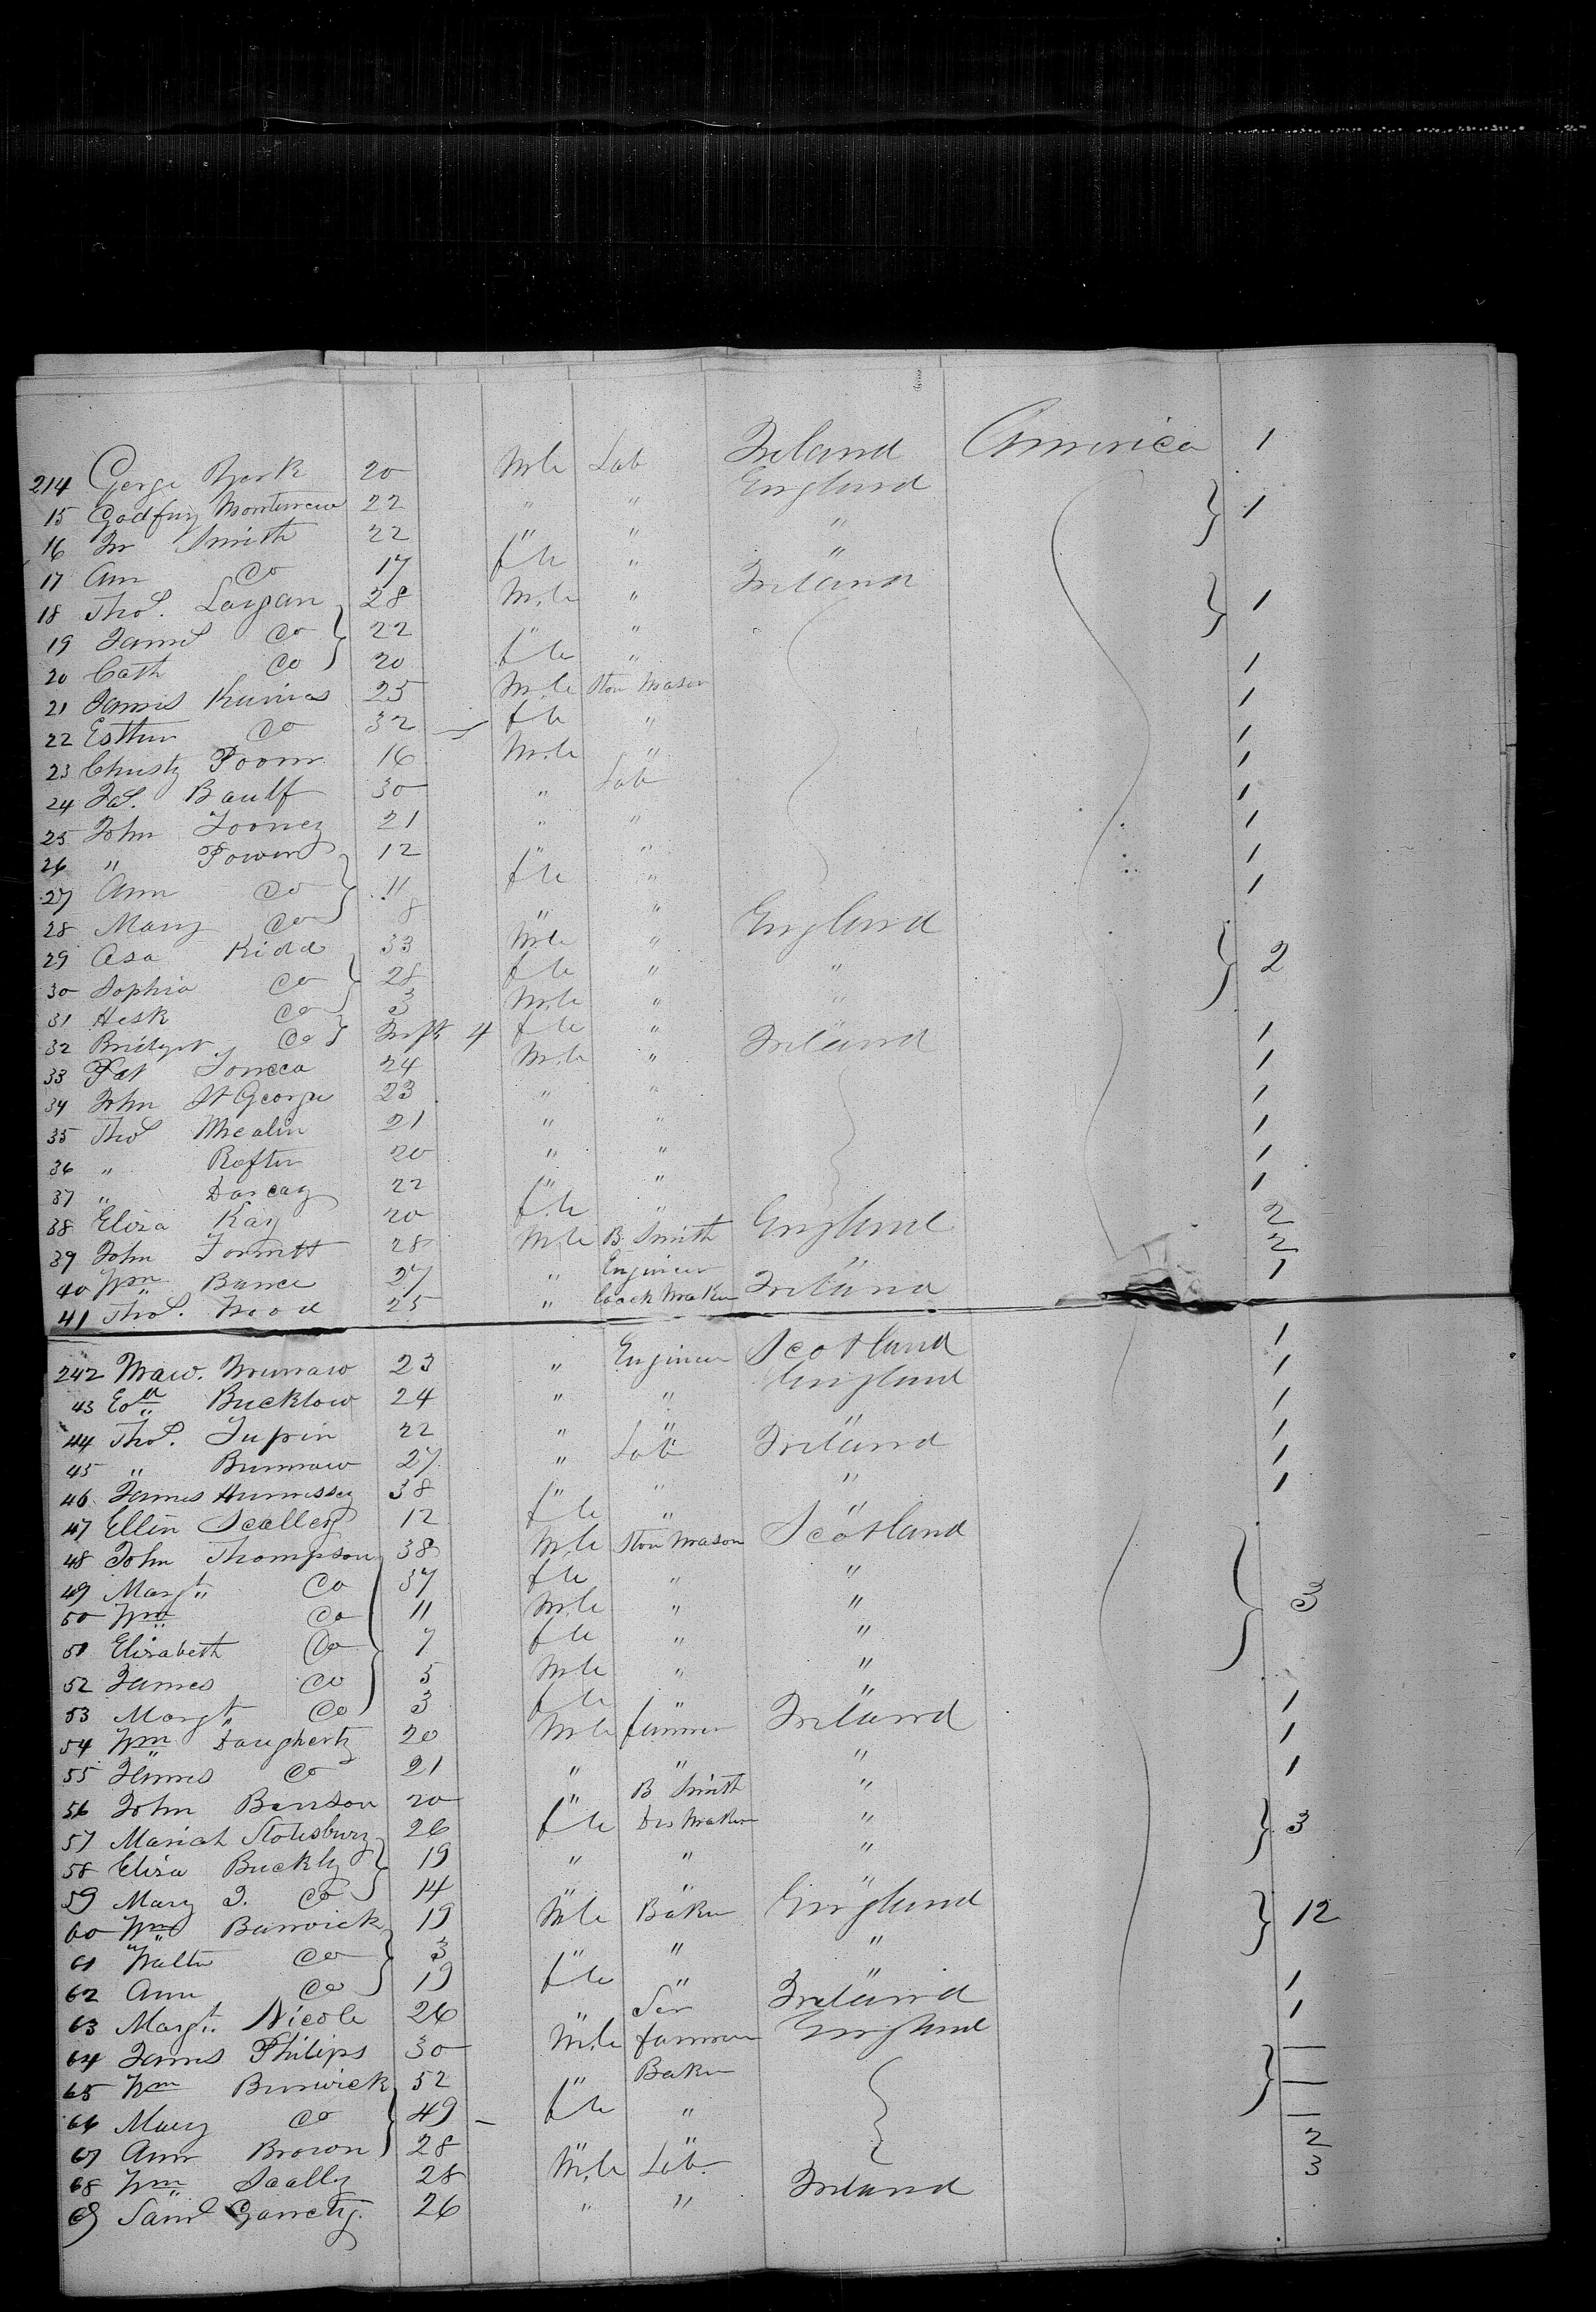 214 George York 20 Mle Lab Ireland America 1
15 Godfrey 22 " " England 1
16 Smith 22 " " "
17 Ann Do 17 fle " "
18 Thos. Logan 28 Mle " Ireland 1
19 James Do 22 " "
20 Cath Do 20 fle " 1
21 James 25 Mle Ston Mason 1
22 Esther Do 32 fle " 1
23 Christy 16 Mle " 1
24 Jas. Baulf 30 " Lab 1
25 John Tooney 21 " " 1
26 " Power 12 " " 1
27 Ann Do 11 fle " 1
28 Mary Do 8 " "
29 Asa Kidd 33 Mle " England 2
30 Sophia Do 28 fle " "
31 Hesk Do 3 Mle " "
32 Bridget Do Inft 4 fle " 1
33 Pat 24 Mle " Ireland 1
34 John St George 23 " " 1
35 Thos Mealin 21 " " 1
36 " Rafter 20 " " 1
37 " Darcay 22 " " 1
38 Eliza Kay 20 fle " 2
39 John 28 Mle B. Smith England 2
40 Wm Bance 27 " Engineer " 1
41 Thos. Wood 25 " Coach Maker Ireland
242 23 " Engineer Scotland 1
43 Edd Bucklow 24 " " England 1
44 Thos. Tupin 22 " " " 1
45 " 27 " Lab Ireland 1
46 James Hennessy 38 " " " 1
47 Ellen Scalley 12 fle " " 1
48 John Thompson 38 Mle Ston Mason Scotland
49 Margt Do 37 fle " "
50 Wm Do 11 Mle " " 3
51 Elizabeth Do 7 fle " "
52 James Do 5 Mle " "
53 Margt Do 3 fle " " 1
54 Wm Daugherty 20 Mle farmer Ireland 1
55 James Do 21 " " " 1
56 John Benson 20 " B Smith "
57 Mariah Stotesbury 26 fle Drs Maker " 3
58 Eliza Buckly 19 " " "
59 Mary J. Do 14 " " "
60 Wm Barwick 19 Mle Baker England 12
61 Walter Do 3 " " "
62 Ann Do 19 fle " " 1
63 Margt. Nicole 26 " Ser Ireland 1
64 James Philips 30 Mle farmer England —
65 Wm Burwick 52 " Baker —
66 Mary Do 49 fle " —
67 Ann Brown 28 " " 2
68 Wm Scally 28 Mle Lab. Ireland 3
69 Saml Garrety. 26 " "